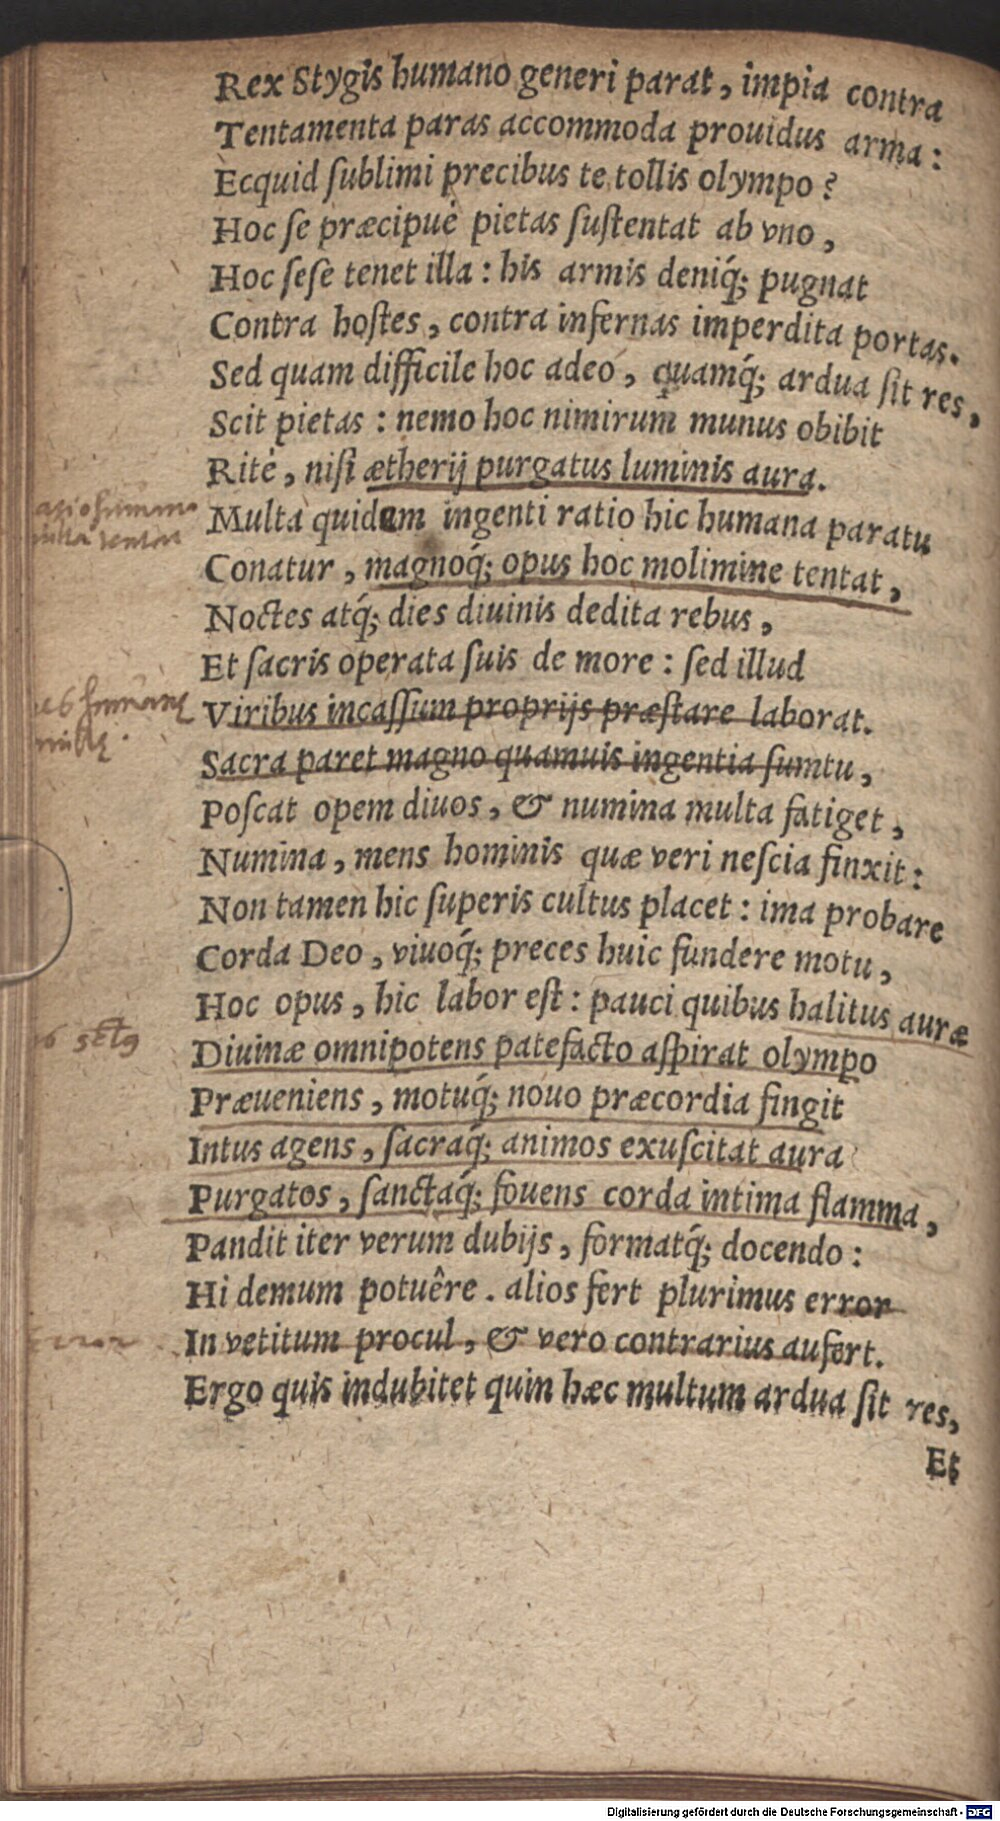 Rex Stygis humano generi parat, impia contra
Tentamenta paras accommoda prouidus arma:
Ecquid ſublimi precibus te tollis olympo?
Hoc ſe præcipuè pietas ſuſtentat ab vno,
Hoc ſeſe tenet illa: his armis deniq́; pugnat
Contra hoſtes, contra infernas imperdita portas.
Sed quam difficile hoc adeò, quamq́; ardua ſit res,
Scit pietas: nemo hoc nimirum munus obibit
Ritè, niſi ætherij purgatus luminis aura.
Multa quidem ingenti ratio hic humana paratu
Conatur, magnoq́; opus hoc molimine tentat,
Noctes atq́; dies diuinis dedita rebus,
Et ſacris operata ſuis de more: ſed illud
Viribus incaſſum proprijs præſtare laborat.
Sacra paret magno quamuis ingentia ſumtu,
Poſcat opem diuos, & numina multa fatiget,
Numina, mens hominis quæ veri neſcia finxit:
Non tamen hic ſuperis cultus placet: ima probare
Corda Deo, viuoq́; preces huic fundere motu,
Hoc opus, hic labor eſt: pauci quibus halitus auræ
Diuinæ omnipotens patefacto aſpirat olympo
Præueniens, motuq́; nouo præcordia fingit
Intus agens, ſacraq́; animos exuſcitat aura
Purgatos, ſanctaq́; fouens corda intima flamma,
Pandit iter verum dubijs, formatq́; docendo:
Hi demum potuêre. alios fert plurimus error
Error
In vetitum procul, & vero contrarius aufert.
Ergo quis indubitet quin hæc multum ardua ſit res,
Et
Digitalisierung gefördert durch die Deutsche Forschungsgemeinschaft - DFG